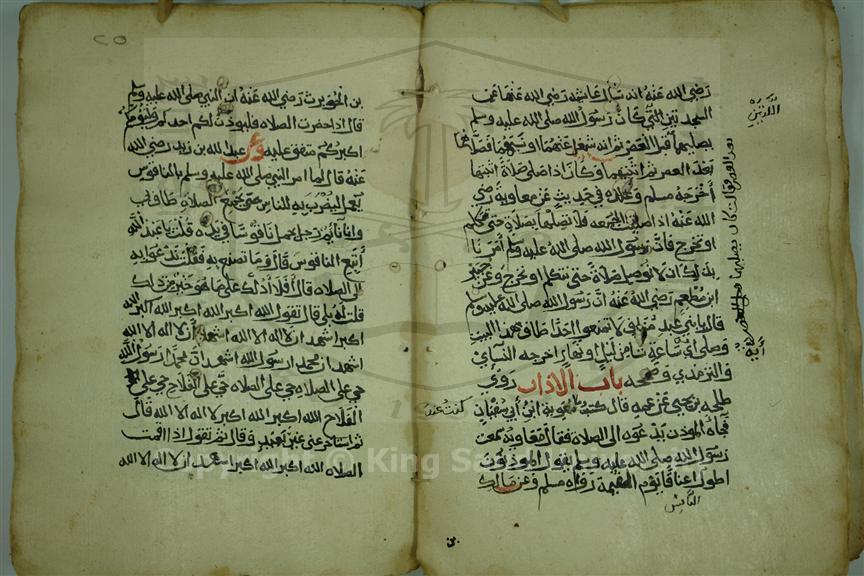 رضي الله عنه انه سال عايشة رضي الله عنها عن
السجدتين اللتي كان رسول الله صلى الله عليه وسلم
يصليهما قبل العصر ثم انه شغل عنهما او نسيهما فصلاهما
بعد العصر ثم اثبتهما وكان اذا صلى صلاة اثبتها
اخرجه مسلم وعنده في حديث عن معاوية رضي
الله عنه اذا صليت الجمعه فلا تصلها بصلاة حتى تتكلم
او تخرج فان رسول الله صلى الله عليه وسلم امرنا
بذلك ان لا نوصل صلاة حتى نتكلم او نخرج وعن جبير
ابن مطعم رضي الله عنه ان رسول الله صلى الله عليه وسلم
قال يا بني عبد مناف لا تمنعوا احدا طاف بهذا البيت
وصلى اي ساعة شا من ليل او نهار اخرجه النساي
والترمذي وصححه باب الاذان روى
طلحه بن يحي عن عمه قال كنت عند معوية ابن ابي سفيان
فجاه الموذن يدعوه الى الصلاة فقال معاوية سمعت
رسول الله صلى الله عليه وسلم يقول الموذنون
اطول اعناقا يوم القيمة رواه مسلم وعن مالك
بن الحويرث رضي الله عنه ان النبي صلى الله عليه وسلم
قال اذا حضرت الصلاه فليوذن لكم احدكم وليومكم
اكبركم متفق عليه وعن عبد الله بن زيد رضي الله
عنه قال لما امر النبي صلى الله عليه وسلم بالناقوس
يعمل ليضرب به للناس حتى يجتمع الصلاة طاف بي
وانا نايم رجل يحمل ناقوسا في يده قلت يا عبد الله
اتبيع الناقوس قال وما تصنع به فقلت ندعوا به
الى الصلاه قال افلا ادلك على ما هو خير من ذلك
قلت له بلى قال تقول الله اكبر الله اكبر الله اكبر الله
اكبر اشهد ان لا اله الا الله اشهد ان لا اله الا الله
اشهد ان محمدا رسول الله اشهد ان محمدا رسول الله
حي على الصلاه حي على الصلاه حي على الفلاح حي على
الفلاح الله اكبر الله اكبر لا اله الا الله قال
ثم استاخر عني غير بعيد وقال ثم تقول اذا اقمت
الصلاه الله اكبر الله اكبر اشهد ان لا اله الا الله
٢٥
Copyright © King Saud